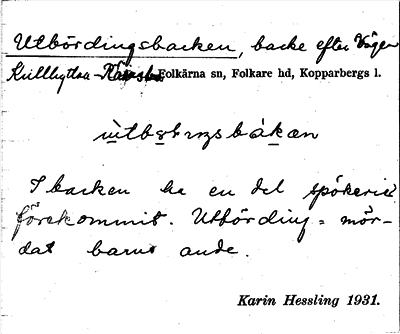 Utbördingsbacken, backe efter Vägen
Kullhyttan - Folkärna sn, Folkare hd, Kopparbergs l.
I backen ha en del spökerier
förekommit. Utbörding = mör-
dat barns ande.
Karin Hessling 1931.